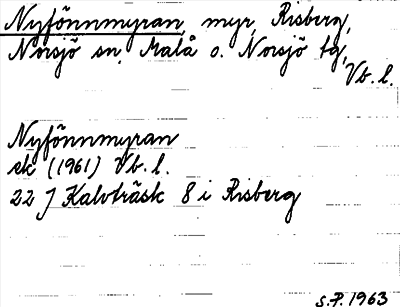 Nyfönnmyran, myr, Risberg,
Norsjö sn, Malå o. Norsjö tg,
Vb. l.
Nyfönnmyran
ek (1961) Vb. l.
22 J Kalvträsk 8 i Risberg
S.P. 1963